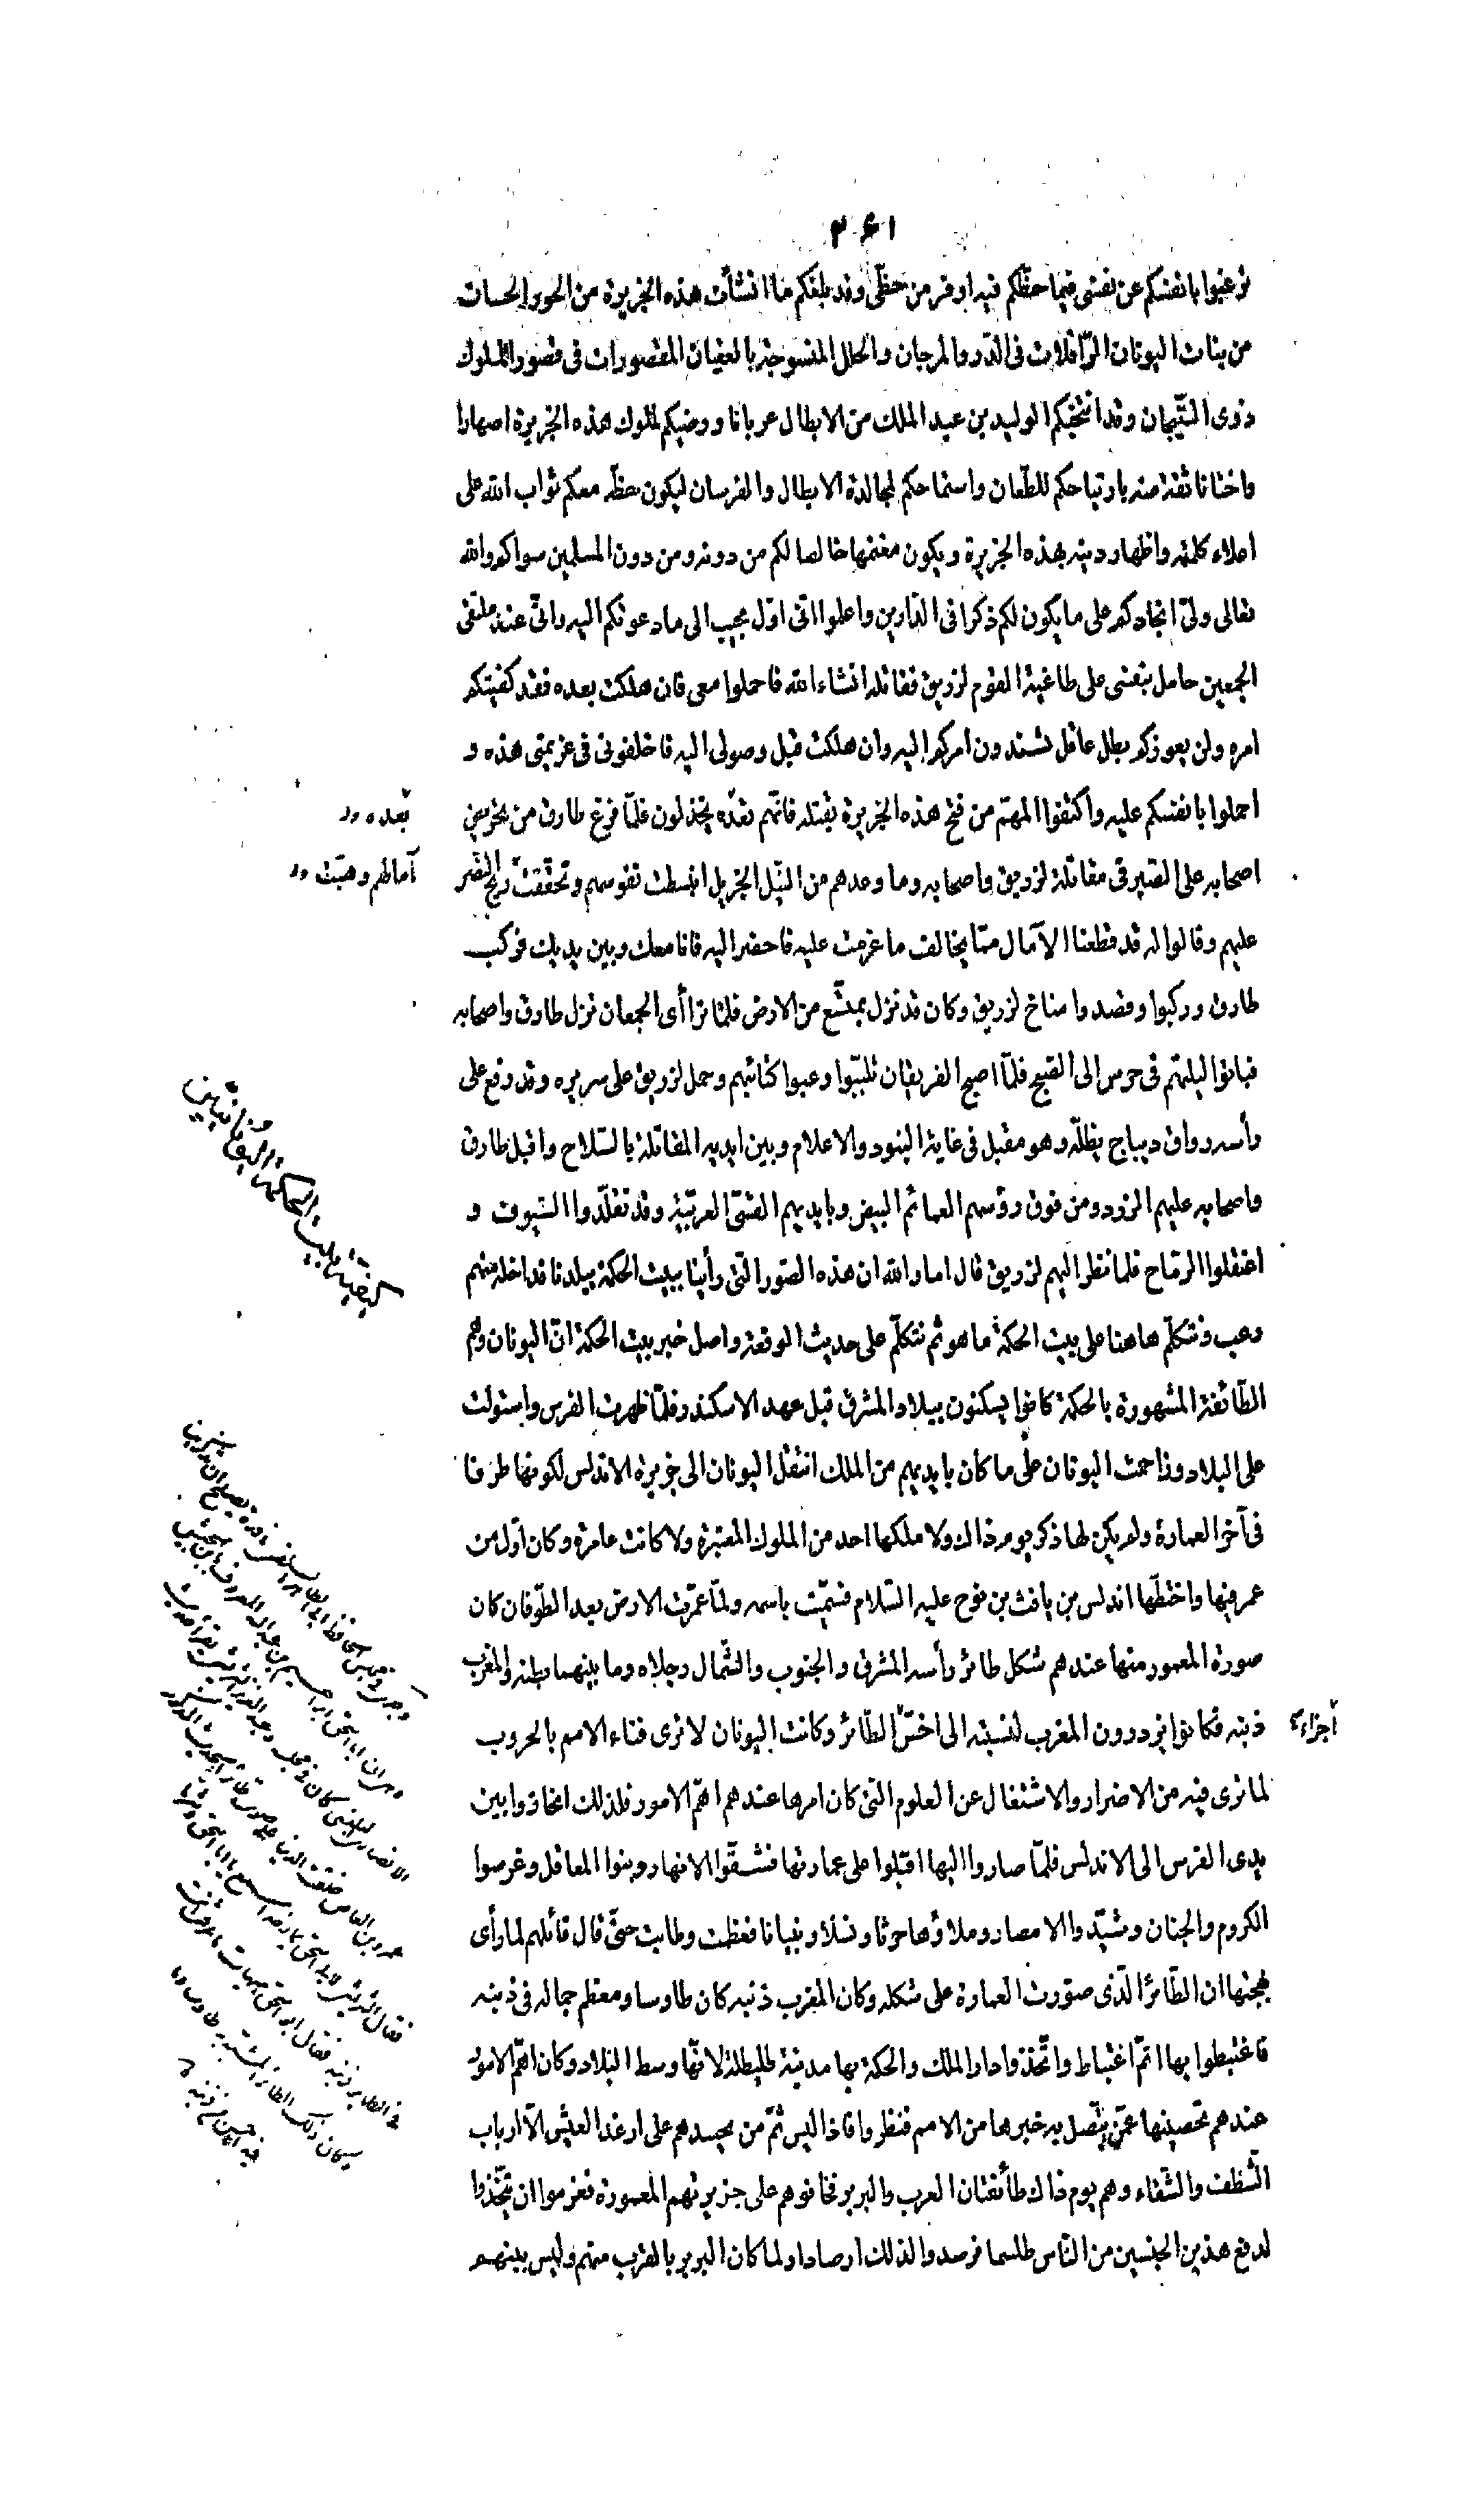 ۲۶۱
ترغبوا بانفسكم عن نفسى فيما حظكم فيه اوفر من حظّى وقد بلغكم ما انشأت هذه الجزيرة من الحور الحسان
من بنات اليونان الرّافلات فى الدّر والمرجان والحلل المنسوجة بالعقيان المقصورات فى قصور الملوك
ذوى التّيجان وقد انتخبكم الوليد بن عبد الملك من الابطال عربانا ورضيكم لملوك هذه الجزيرة اصهارا
واختانا ثقة منه بارتياحكم للطّعان واستماحكم لمجالدة الابطال والفرسان ليكون حظّه معكم ثواب الله على
اعلاء كلمته واظهار دينه بهذه الجزيرة ويكون مغنمها خالصا لكم من دونه ومن دون المسلمين سواكم والله
تعالى ولىّ انجادكم على ما يكون لكم ذكرا فى الدّارين واعلموا انّى اوّل مجيب الى ما دعوتكم اليه وانّى عند ملتقى
الجمعين حامل بنفسى على طاغية القوم لزريق فقاتله انشاء الله فاحملوا معى فان هلكت بعده فقد كفيتكم
امره ولن يعوزكم بطل عاقل تسندون امركم اليه وان هلكت قبل وصولى اليه فاخلفونى فى عزيمتى هذه و
احملوا بانفسكم عليه واكتفوا المهمّ من فتح هذه الجزيرة بقتله فانّهم بعده يخذلون فلمّا فرغ طارق من تحريض
بعده
اصحابه على الصّبر فى مقاتلة لزريق واصحابه وما وعدهم من النّيل الجزيل انبسطت نفوسهم وتحققت ريح النّصر
آمالهم وهبّت
عليهم وقالوا له قد قطعنا الآمال ممّا يخالف ما عزمت عليه فاحضر اليه فانا معك وبين يديك فركب
طارق وركبوا وقصدوا مناخ لزريق وكان قد نزل بمتّسع من الارض فلمّا تراأى الجمعان نزل طارق واصحابه
فباتوا ليلتهم فى حرس الى الصّبح فلمّا اصبح الفريقان تلبّبوا وعبوا كتائبهم وحمل لزريق على سريره وقد رفع على
رأسه رواق ديباج يظلّه وهو مقبل فى غاية البنود والاعلام وبين ايديه المقاتلة بالسّلاح واقبل طارق
واصحابه عليهم الزرد ومن فوق رؤسهم العمائم البيض وبايديهم القسىّ العربيّة وقد تقلّدوا السّيوف و
اعتقلوا الرّماح فلما نظر اليهم لزريق قال اما والله ان هذه الصّور الّتى رأينا ببيت الحكمة ببلدنا قد اخله منهم
رعب ونتكلّم هاهنا على بيت الحكمة ما هو ثم نتكلّم على حديث الوقعة واصل خبر بيت الحكمة انّ اليونان وهم
الطّائفة المشهورة بالحكمة كانوا يسكنون ببلاد المشرق قبل عهد الاسكندر فلمّا ظهرت الفرس واستولت
على البلاد وزاحمت اليونان على ما كان بايديهم من الملك انتقل اليونان الى جزيرة الاندلس لكونها طرفا
فى آخر العمارة ولم يكن لها ذكر يومذاك ولا ملكها احد من الملوك المعتبرة ولا كانت عامرة وكان اوّل من
عمر فيها واختطّها اندلس بن يافث بن نوح عليه السّلام فسمّيت باسمه ولمّا عمّرت الارض بعد الطّوفان كان
صورة المعمور منها عندهم شكل طائر رأسه المشرق والجنوب والشّمال رجلاه وما بينهما بطنه والمغرب
ذنبه فكانوا يزدرون المغرب لنسبته الى اخسّ الطّائر وكانت اليونان لا ترى فناء الامم بالحروب
اجزاء
لما ترى فيه من الاضرار والاشتغال عن العلوم الّتى كان امرها عندهم اهمّ الامور فلذلك انحازوا بين
يدى الفرس الى الاندلس فلمّا صاروا اليها اقبلوا على عمارتها فشقّوا الانهار وبنوا المعاقل وغرسوا
الكروم والجنان وشيّدوا الامصار وملاؤها حرثا ونسلا وبنيانا فعظمت وطابت حتّى قال قائلهم لما رأى
بهجتها ان الطّائر الّذى صوّرت العمارة على شكله وكان المغرب ذنبه كان طاوسا ومعظم جماله فى ذنبه
فاغتبطوا بها اتمّ اغتباط واتّخذوا دار الملك والحكمة بها مدينة طليطلة لانّها وسط البلاد وكان اهمّ الامور
عندهم تحصينها عمّن يتّصل به خبرها من الامم فنظروا فاذا ليس ثمّ من يحسدهم على ارغد العيش الّا ارباب
الشّظف والشّقاء وهم يوم ذاك طائفتان العرب والبربر فخافوهم على جزيرتهم المعمورة فعزموا ان يتّخذوا
لدفع هذين الجنسين من النّاس طلسما فرصدوا لذلك ارصادا ولما كان البربر بالقرب منهم وليس بينهم
كيفيّة بيت الحكمة اليونانيّين